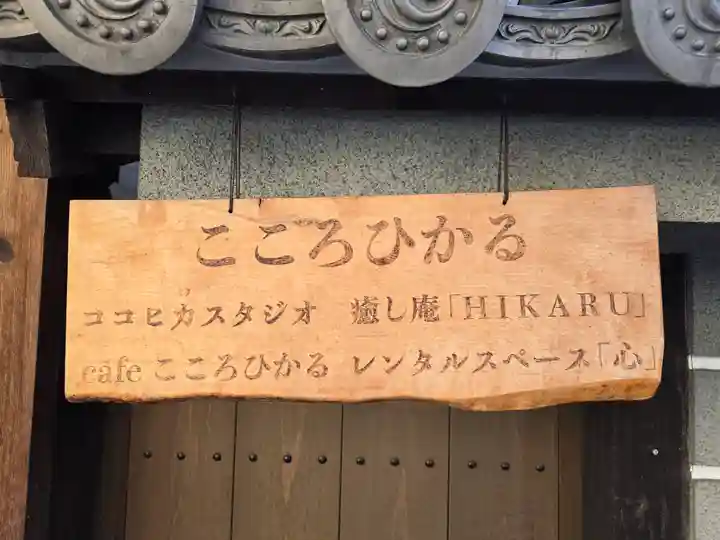 こころひかる
ココヒカスタジオ 癒し庵「HIKARU」
cafe こころひかる レンタルスペース「心」